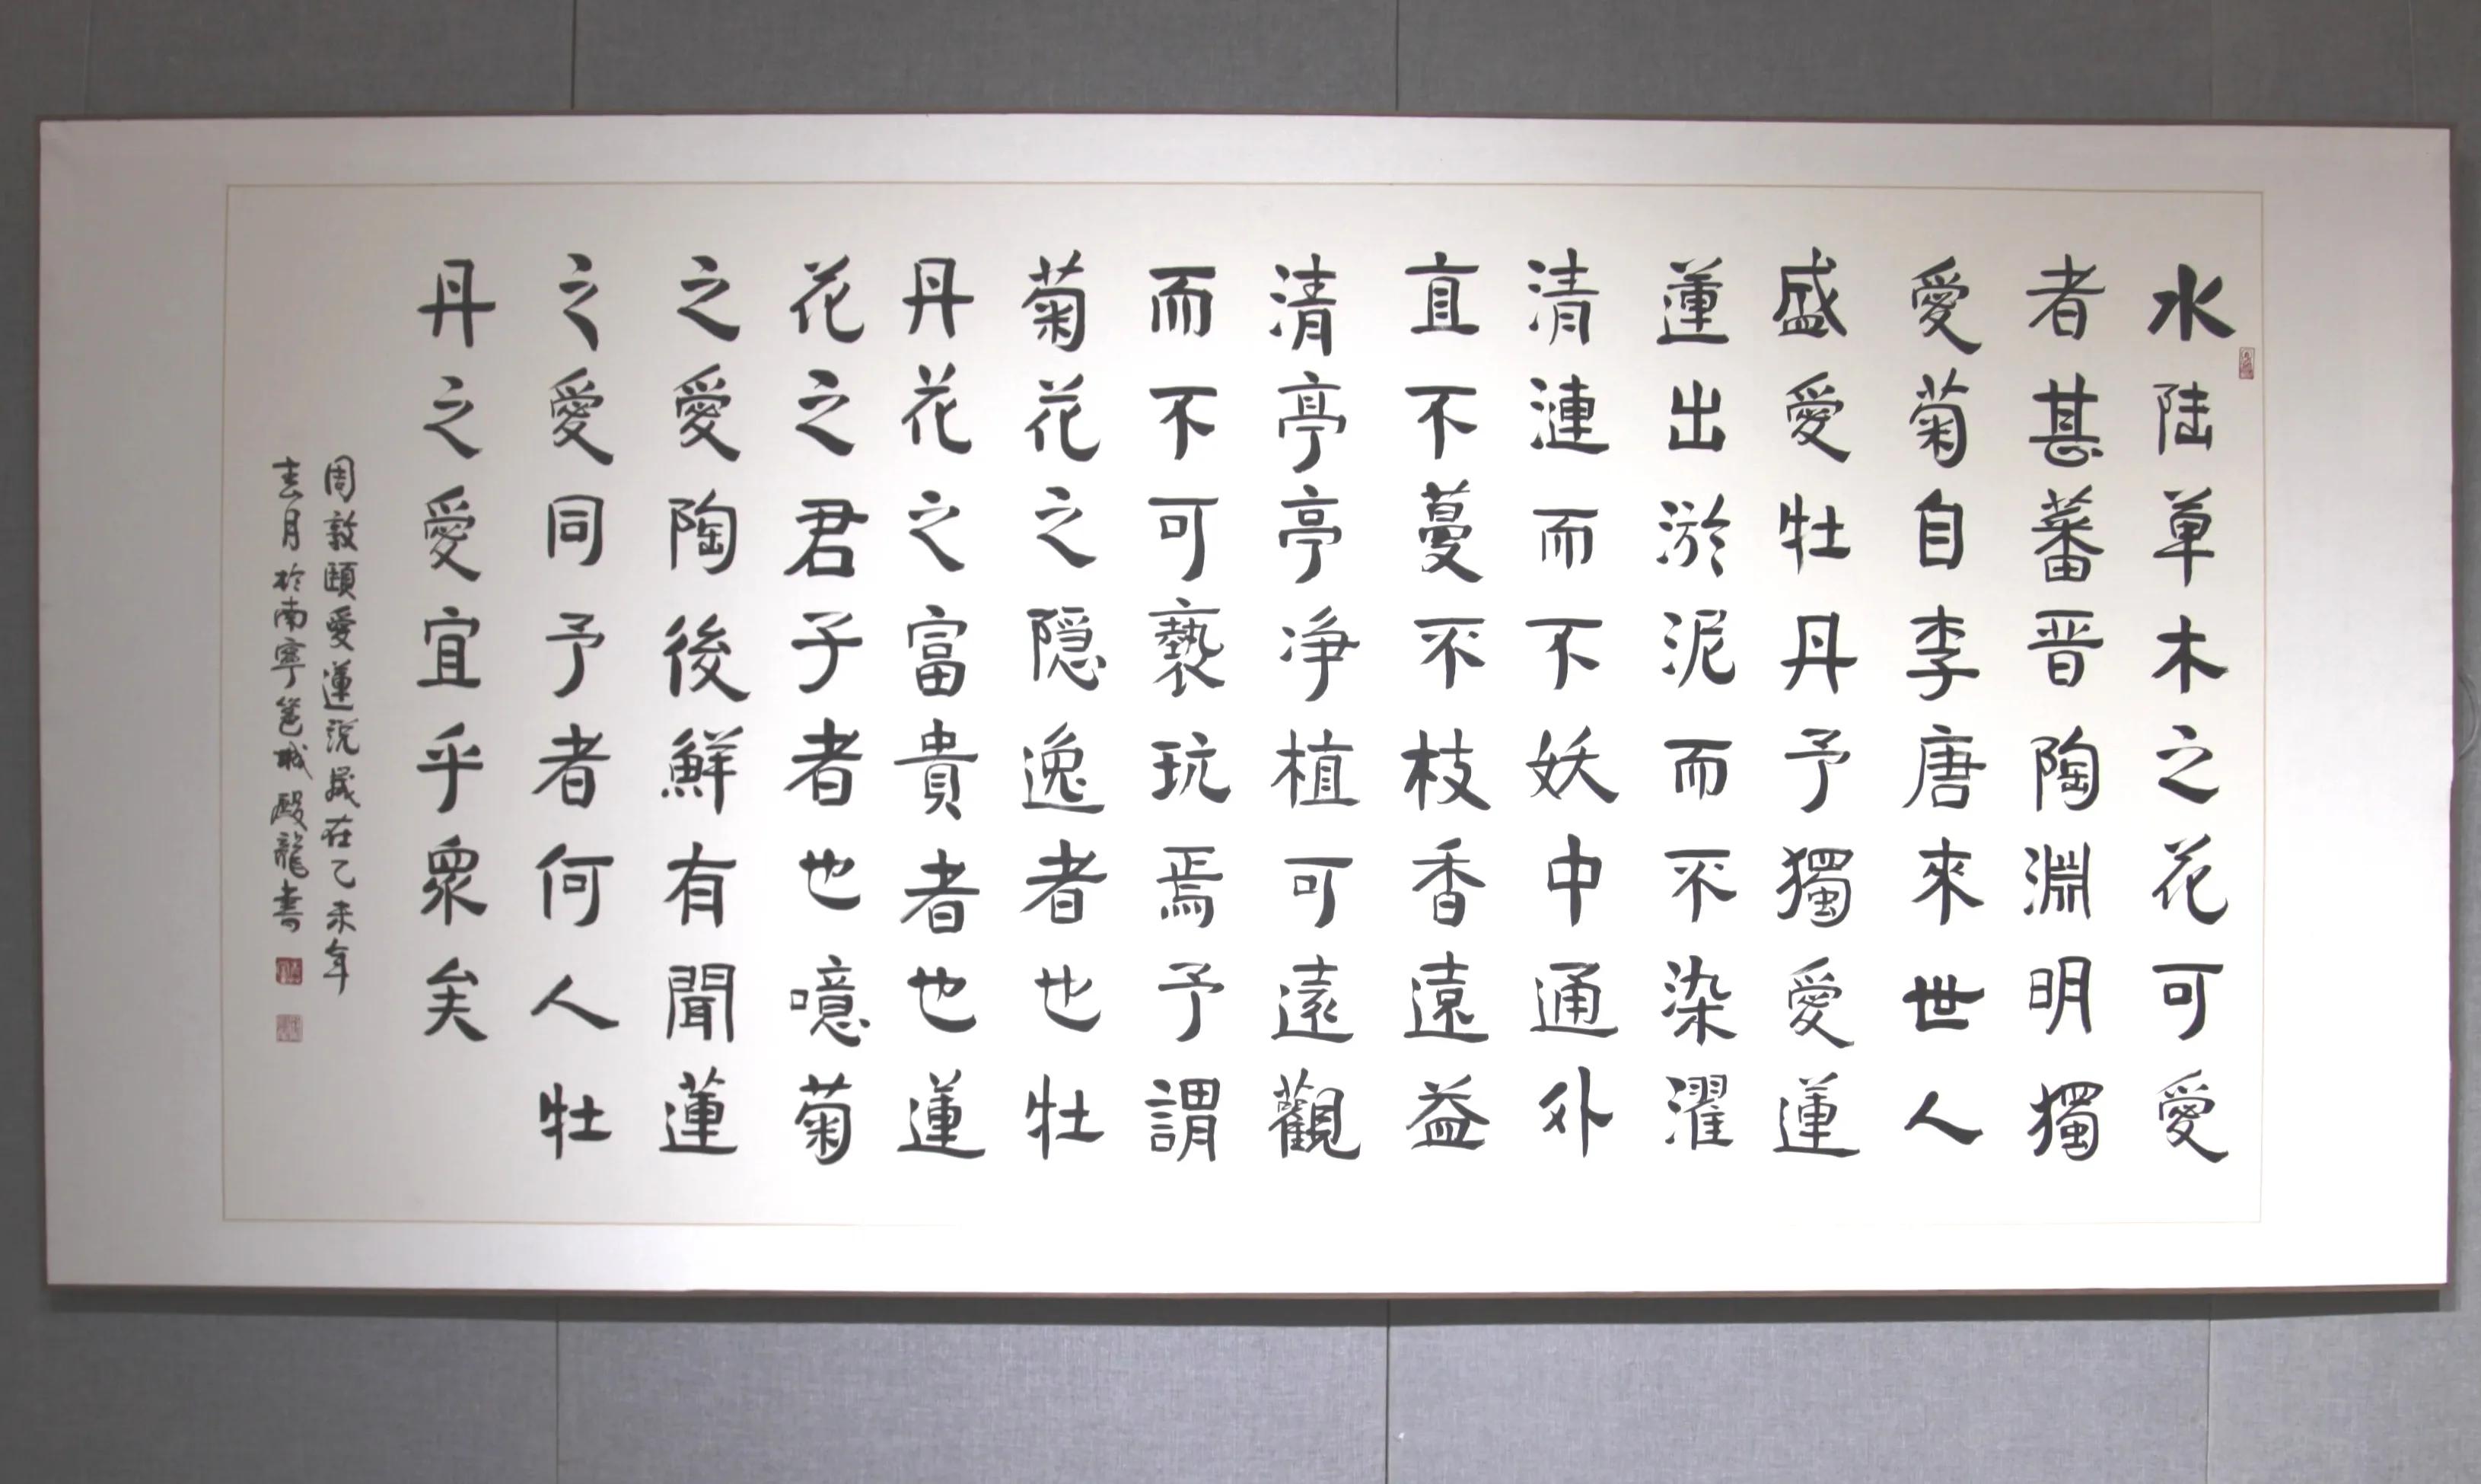 水陆草木之花可愛
者甚蕃晋陶淵明獨
愛菊自李唐來世人
盛愛牡丹予獨愛蓮
蓮出淤泥而不染濯
清漣而不妖中通外
直不蔓不枝香遠益
清亭亭净植可遠觀
而不可褻玩焉予謂
菊花之隠逸者也牡
丹花之富貴者也蓮
花之君子者也噫菊
之愛陶後鮮有聞蓮
之愛同予者何人牡
丹之愛宜乎衆矣
周敦頤愛蓮説歲在乙未年
春月於南寧邕城殿龍書